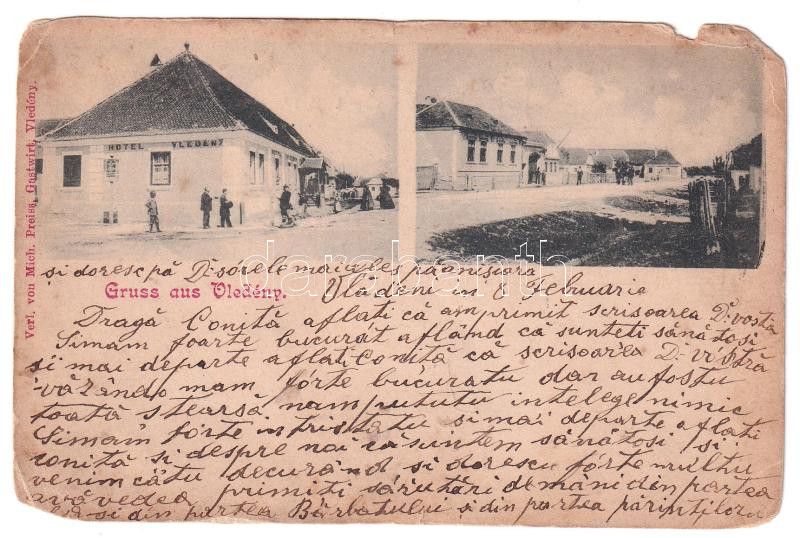 HOTEL VLEDÉNY
Verl. von Mich. Preiss, Gastwirt, Vledény.
darabanth
și doresc pă D-sórele mai ales pă anișora
Gruss aus Vledény.
Vlădeni in 8 Februarie
Dragă Coniță aflați că am primit scrisoarea D-vostă
Simam foarte bucurat aflând că sunteti sănătosi
si mai departe aflati Coniță că scrisoarea D-vóstră
văzând mam fórte bucuratu dar au fostu
toată stearsă nam pututu intelege nimic
Simam fórte intristatu si mai departe aflati
coniță si despre noi că suntem sănătosi si
venim cătu decurănd si dorescu fórte multu
avă vedea primiti sărutări de mâni din partea
si din partea Bărbatului si din partea părintilora